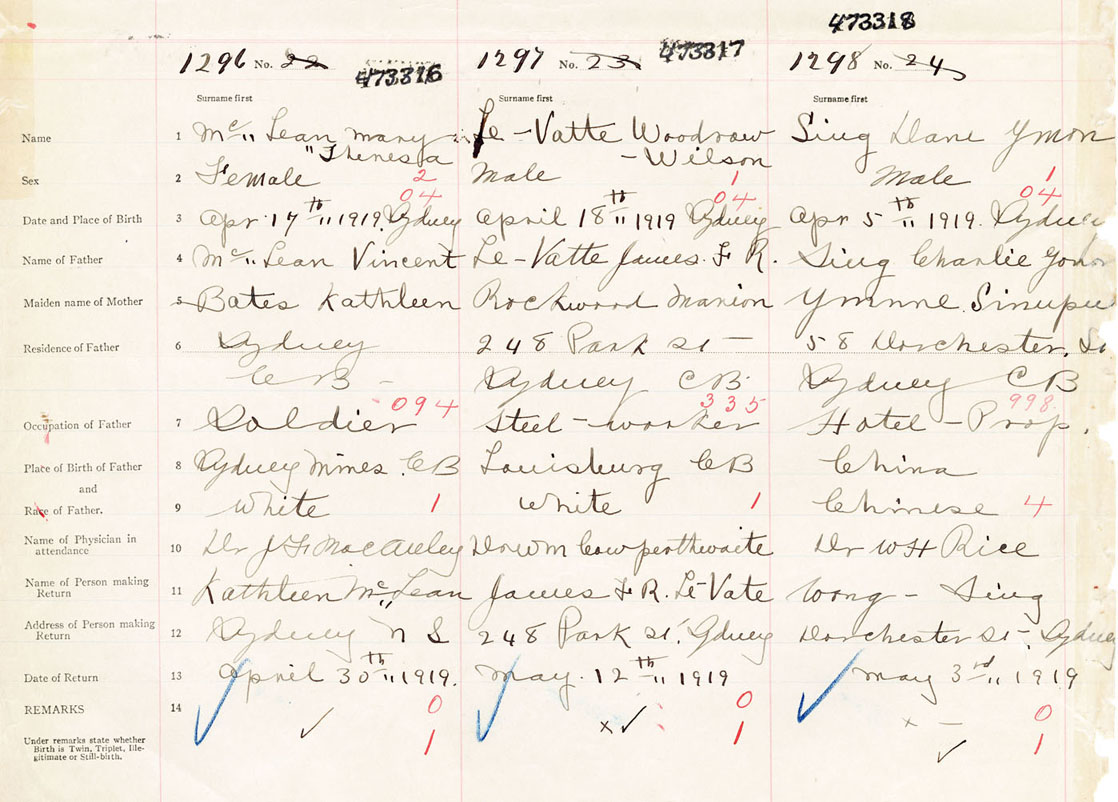 473318
1296 No. 22 473316 1297 No. 23 473317 1298 No. 24
Surname first Surname first Surname first
Name 1 Mc" Lean Mary Le-Vatte Woodrow Sing Dane Ymon
"Theresa -Wilson
Sex 2 Female 2 Male 1 Male 1
04 04 04
Date and Place of Birth 3 Apr 17th" 1919. Sydney April 18th" 1919 Sydney Apr 5th" 1919. Sydney
Name of Father 4 Mc" Lean Vincent Le-Vatte James. F R. Sing Charlie
Maiden name of Mother 5 Bates Kathleen Rockwood Marion
Residence of Father 6 Sydney 248 Park St - 58 Dorchester. St
C B - Sydney C B Sydney C B
094 335 998
Occupation of Father 7 Soldier Steel-worker Hotel-Prop.
Place of Birth of Father 8 Sydney Mines. C B Louisburg C B China
and
Race of Father. 9 White 1 White 1 Chinese 4
Name of Physician in
attendance 10 Dr J. F MacAuley Cowperthwaite Dr W H Rice
Name of Person making
Return 11 Kathleen Mc" Lean James F R. Le-Vate Wong - Sing
Address of Person making
Return 12 Sydney N S 248 Park St. Sydney Dorchester St - Sydney
Date of Return 13 April 30th" 1919. May. 12th" 1919 May 3rd" 1919
REMARKS 14 0 0 0
Under remarks state whether
Birth is Twin, Triplet, Ille-
gitimate or Still-birth. 1 1 1